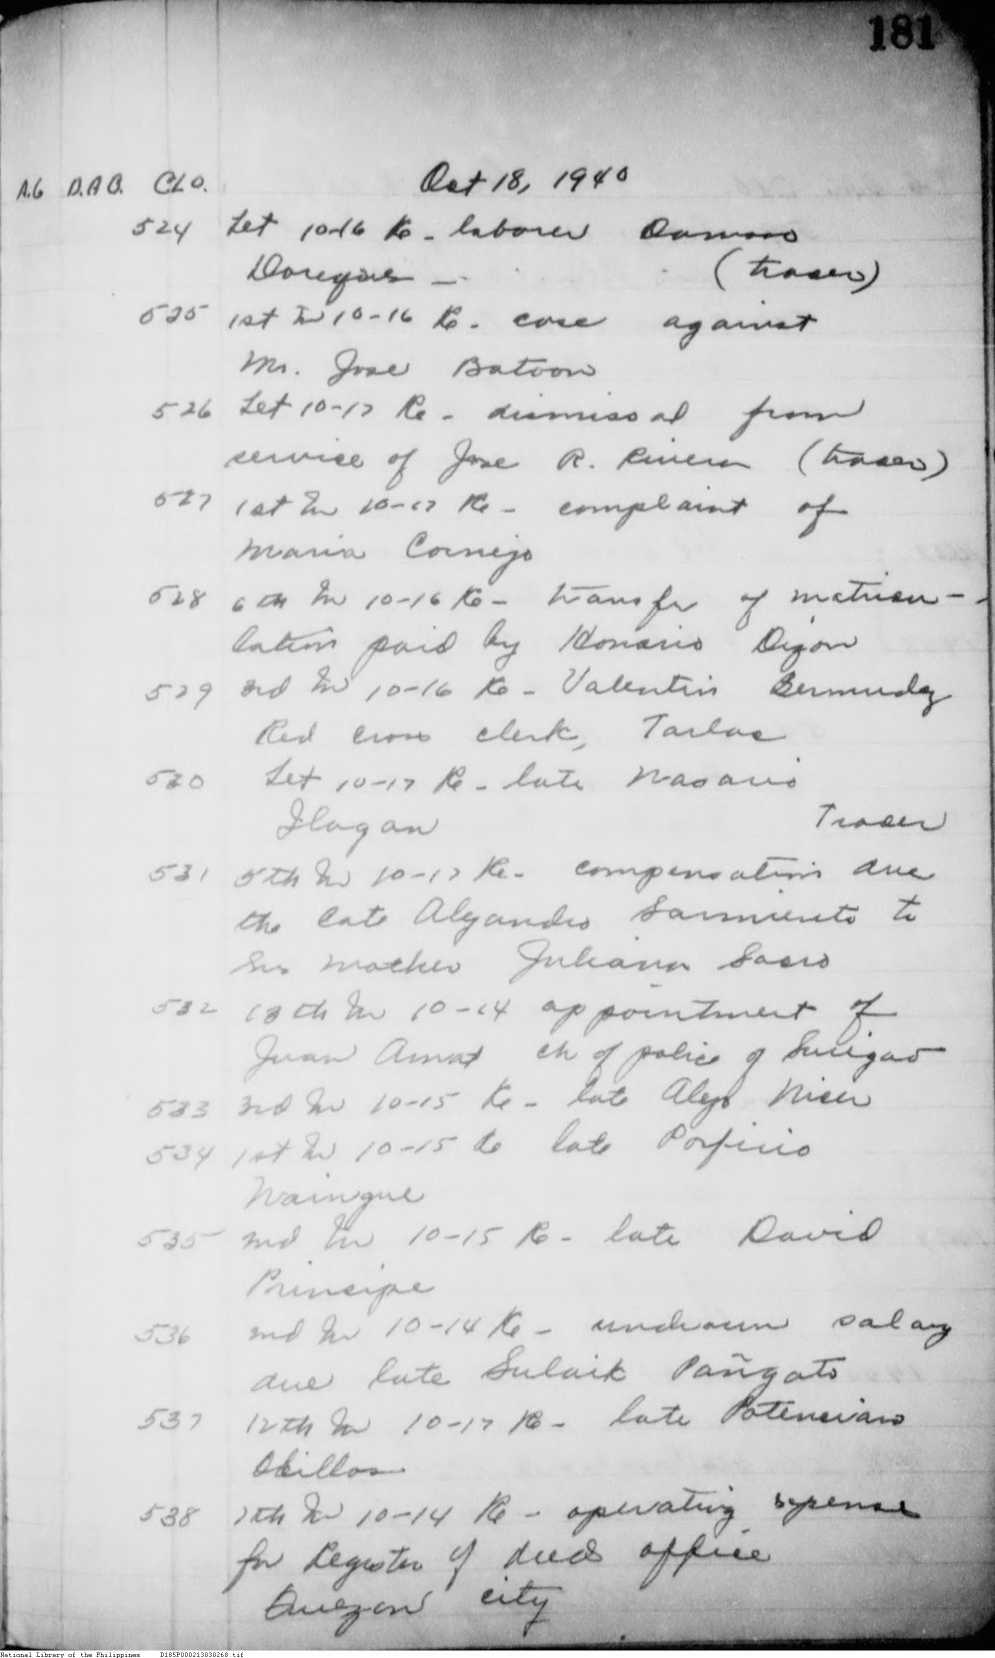 181
A.G D.A.O. CLO. Oct 18, 1940
524 Let 10-16 Re - laborer Damaso
(tracer)
525 1st In 10-16 Re - case against
Mr. Jose Batoon
526 Let 10-17 Re - dismissal from
service of Jose R. Rivera (tracer)
527 1st In 10-17 Re - complaint of
Maria Cornejo
528 6th In 10-16 Re - transfer of matricu-
lation paid by Honorio Dizon
529 3rd In 10-16 Re - Valentin Bermudez
Red Cross clerk, Tarlac
530 Let 10-17 Re - late Nasario
Ilagan Tracer
531 5th In 10-17 Re - compensation due
the late Alejandro Sarmiento to
his mother Juliana
532 13th In 10-14 appointment of
Juan Amat ch of police of Surigao
533 3rd In 10-15 Re - late Alejo
534 1st In 10-15 Re late Porfirio
Waingue
535 2nd In 10-15 Re - late David
Principe
536 2nd In 10-14 Re - undrawn salary
due late Sulaik Pañgato
537 12th In 10-17 Re - late Potenciano
Obillos
538 7th In 10-14 Re - operating expense
for Register of deeds office
Quezon city
National Library of the Philippines D185P000213030268.tif